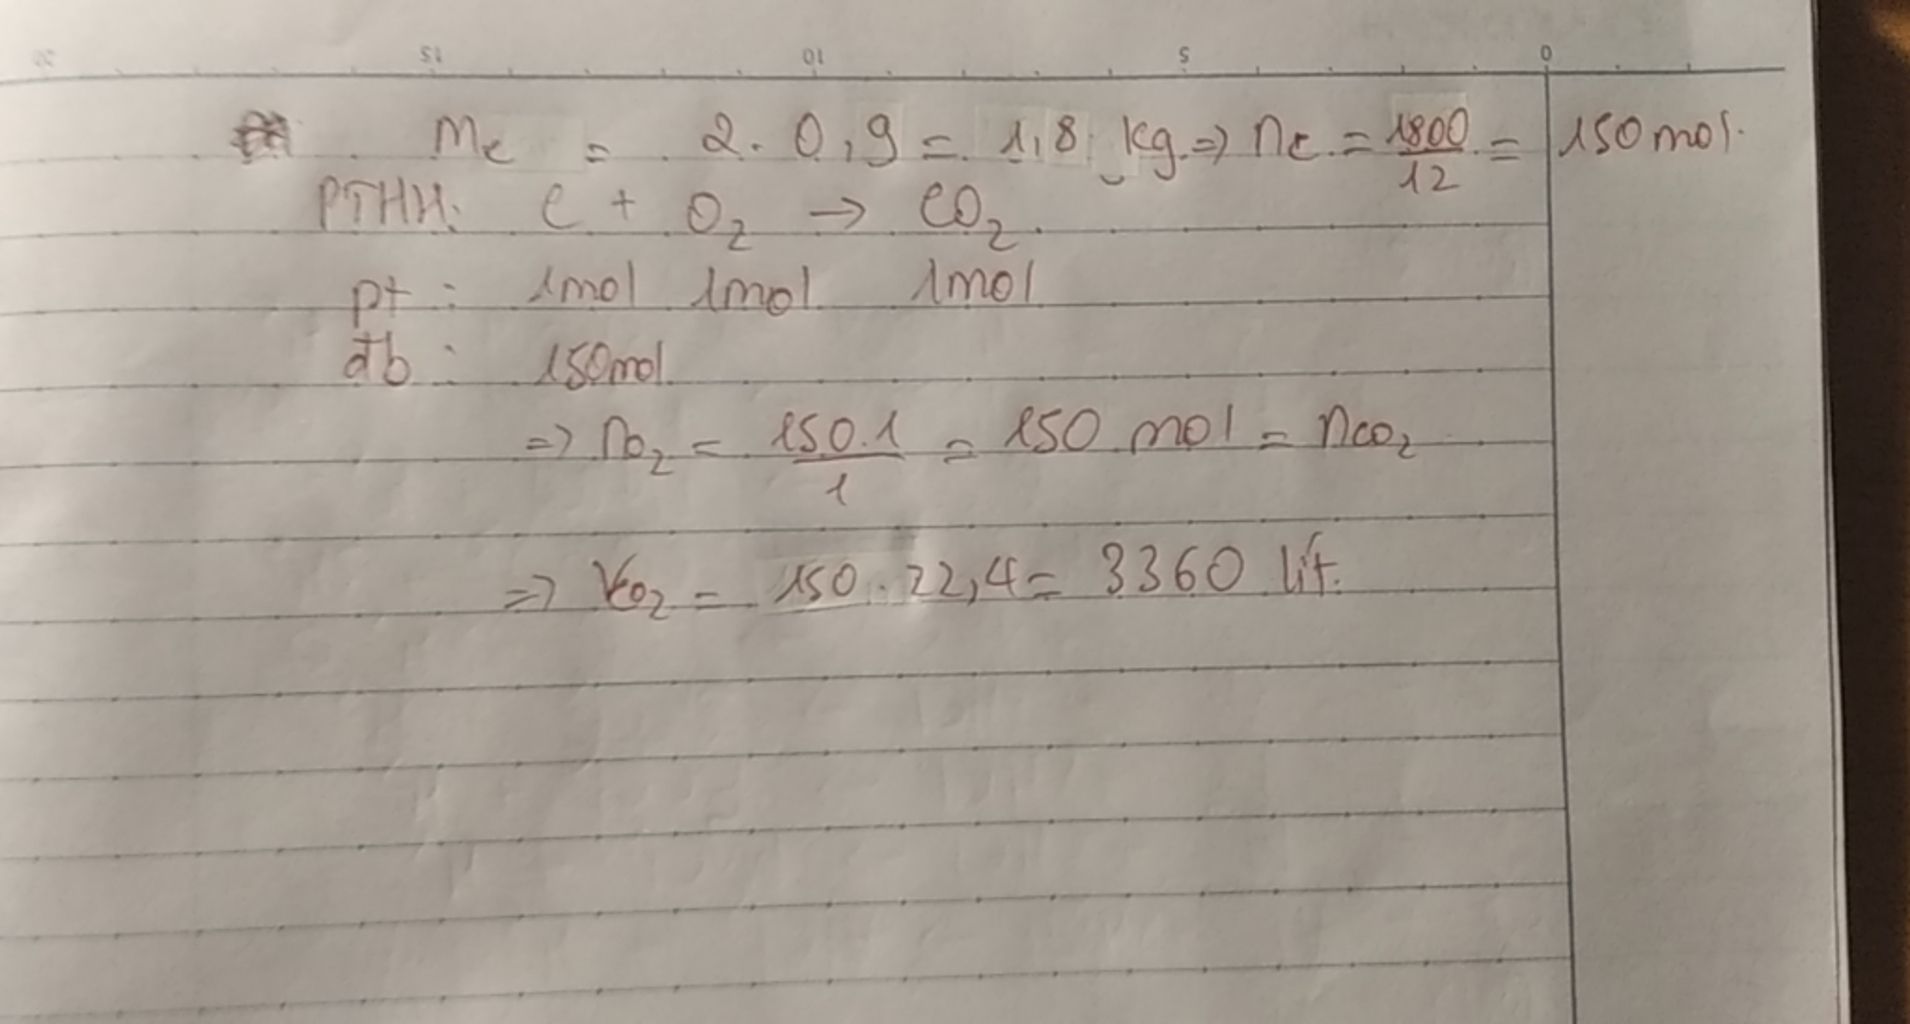 0 5 10 15 20
mc = 2.0,9 = 1,8 kg => nc = 1800/12 = 150 mol.
PTHH: C + O2 → CO2.
pt : 1mol 1mol 1mol
đb : 150mol
=> nO2 = 150.1/1 = 150 mol = nCO2
=> VCO2 = 150.22,4 = 3360 lít.